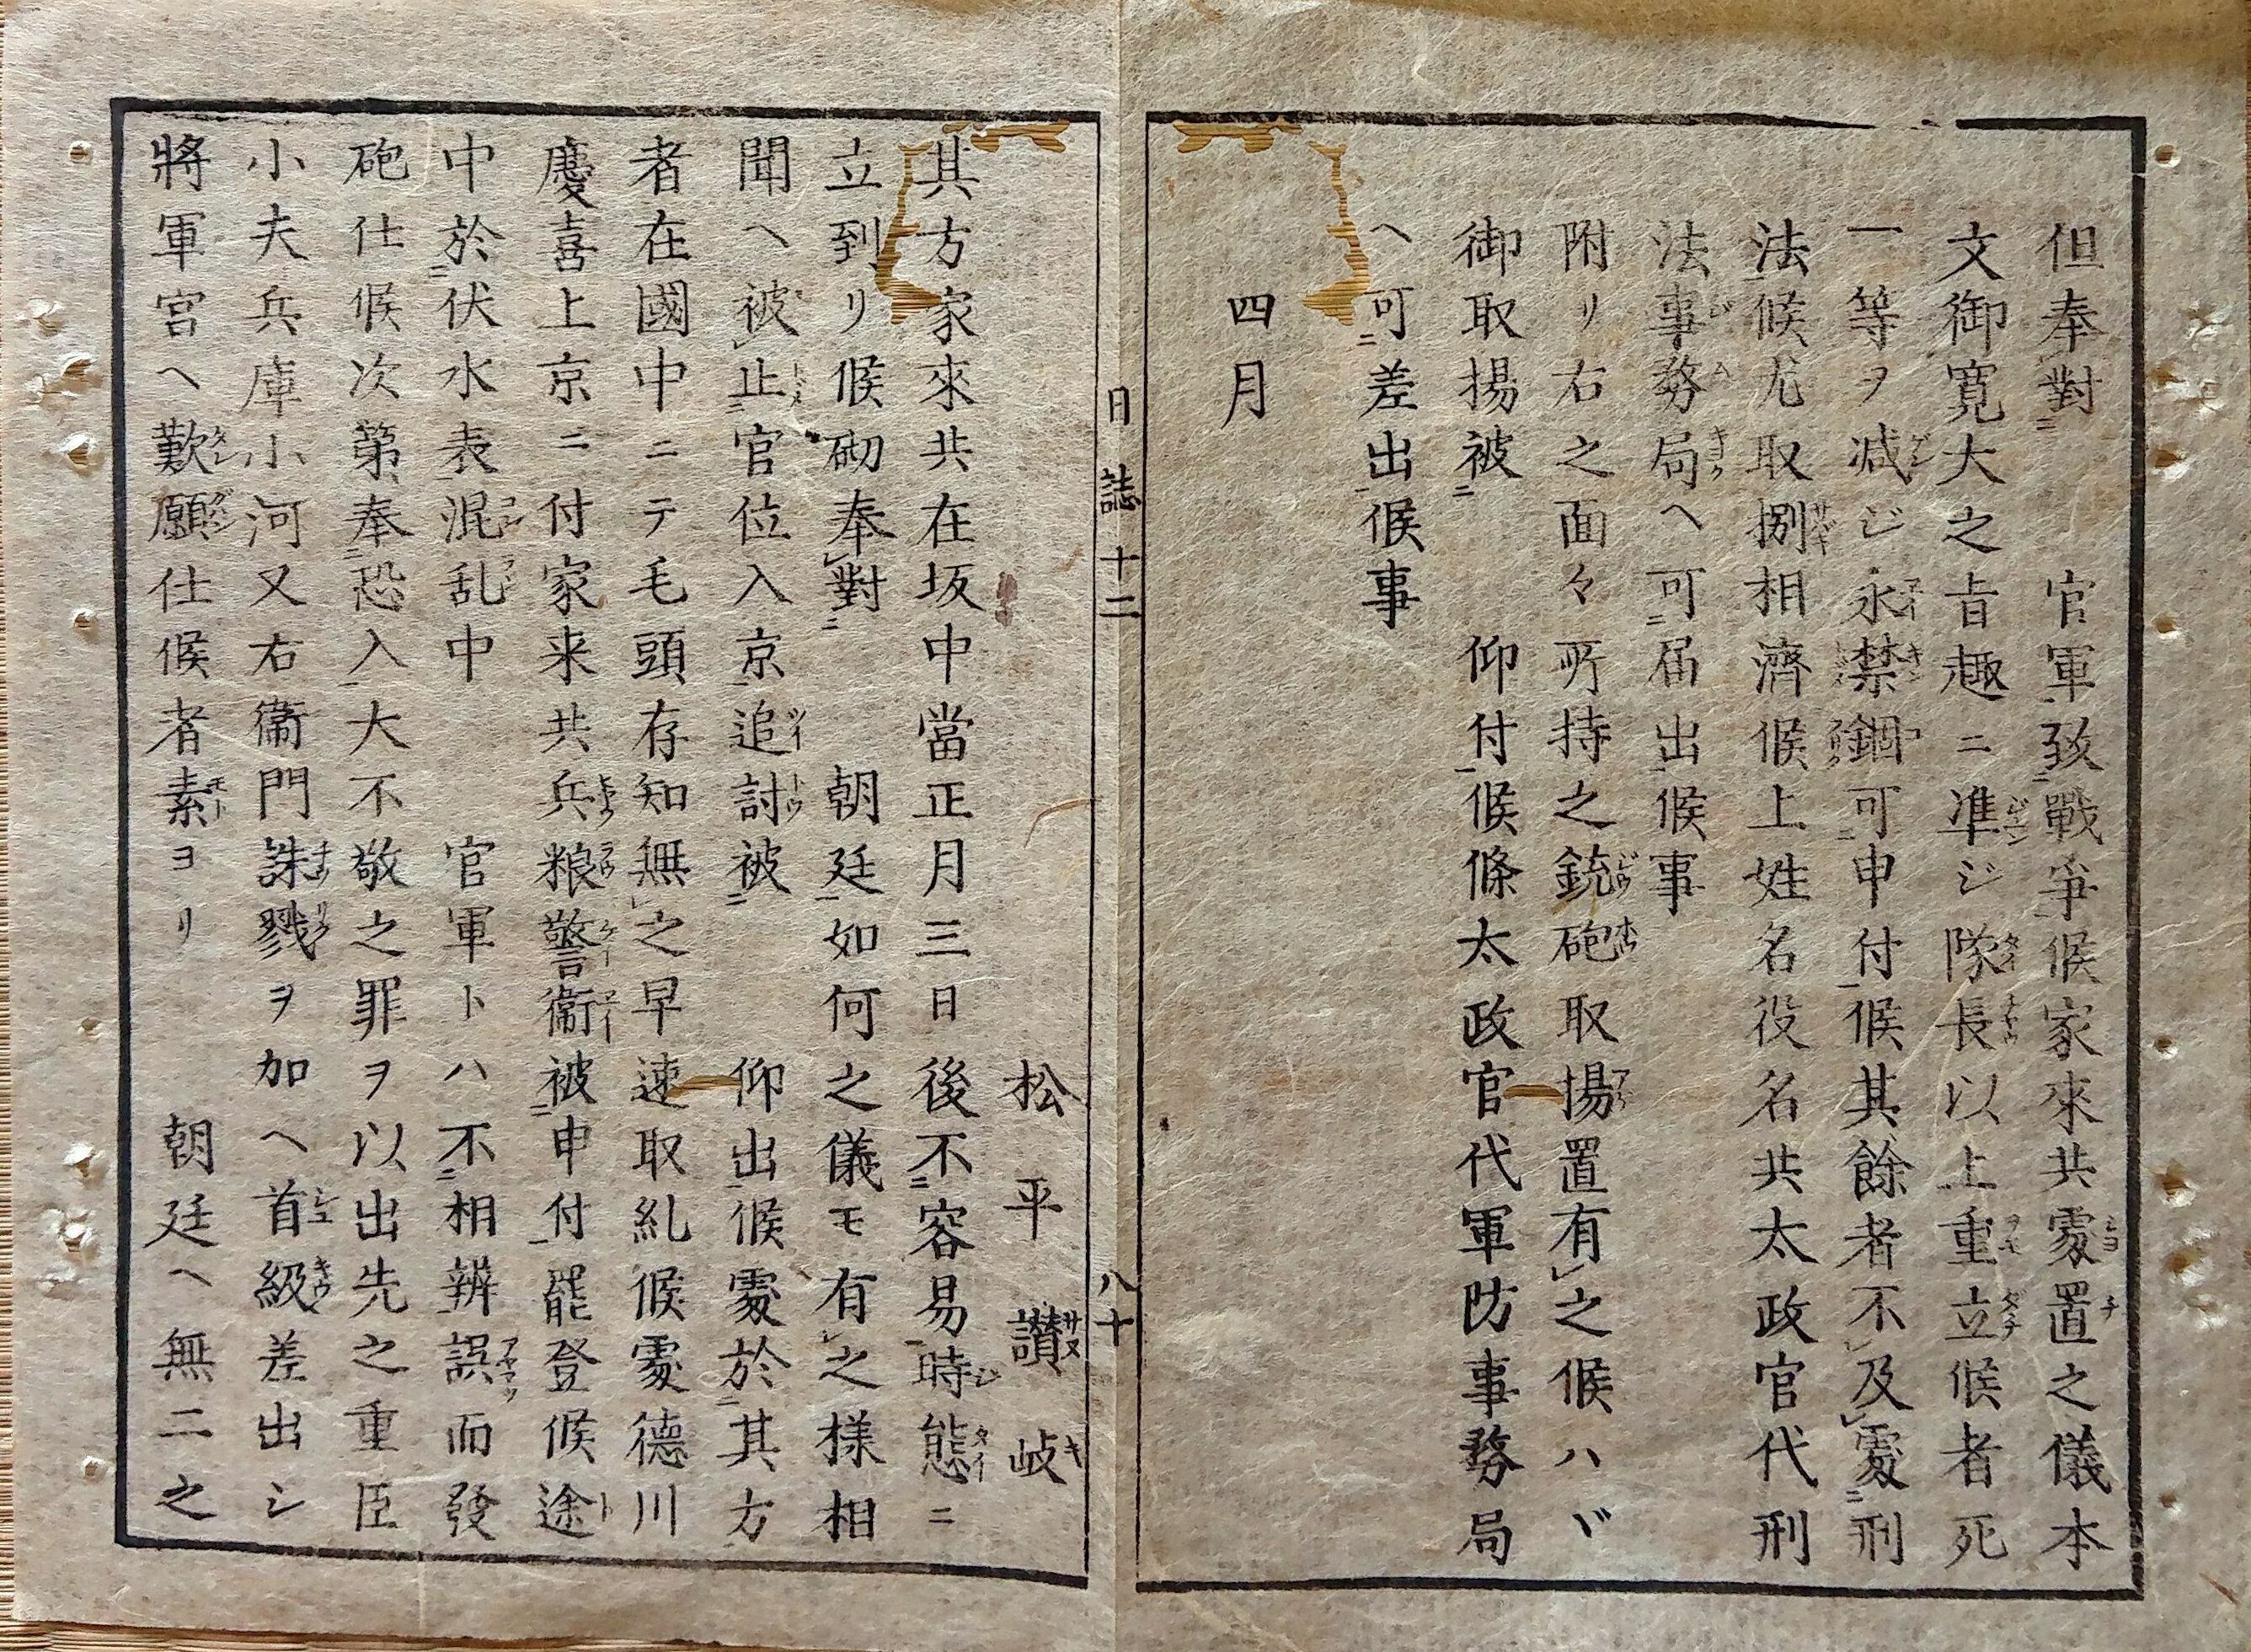 但奉對 官軍致戰爭候家來共處置之儀本
文御寛大之㫖趣ニ準ジ隊長以上重立候者死
一等ヲ減ジ永禁錮可申付候其餘者不及處刑
法候尤取捌相濟候上姓名役名共太政官代刑
法事務局ヘ可届出候事
附リ右之面々所持之銃砲取揚置有之候ハヾ
御取揚被 仰付候條太政官代軍防事務局
ヘ可差出候事
四月
日誌十二 八十
松平讃岐
其方家來共在坂中當正月三日後不容易時態ニ
立到リ候砌奉對 朝廷如何之儀モ有之様相
聞ヘ被止官位入京追討被 仰出候處於其方
者在國中ニテ毛頭存知無之早速取糺候處德川
慶喜上京ニ付家来共兵粮警衞被申付罷登候途
中於伏水表混乱中 官軍トハ不相辨誤而發
砲仕候次第奉恐入大不敬之罪ヲ以出先之重臣
小夫兵庫小河又右衞門誅戮ヲ加ヘ首級差出シ
將軍宮ヘ歎願仕候者素ヨリ 朝廷ヘ無二之